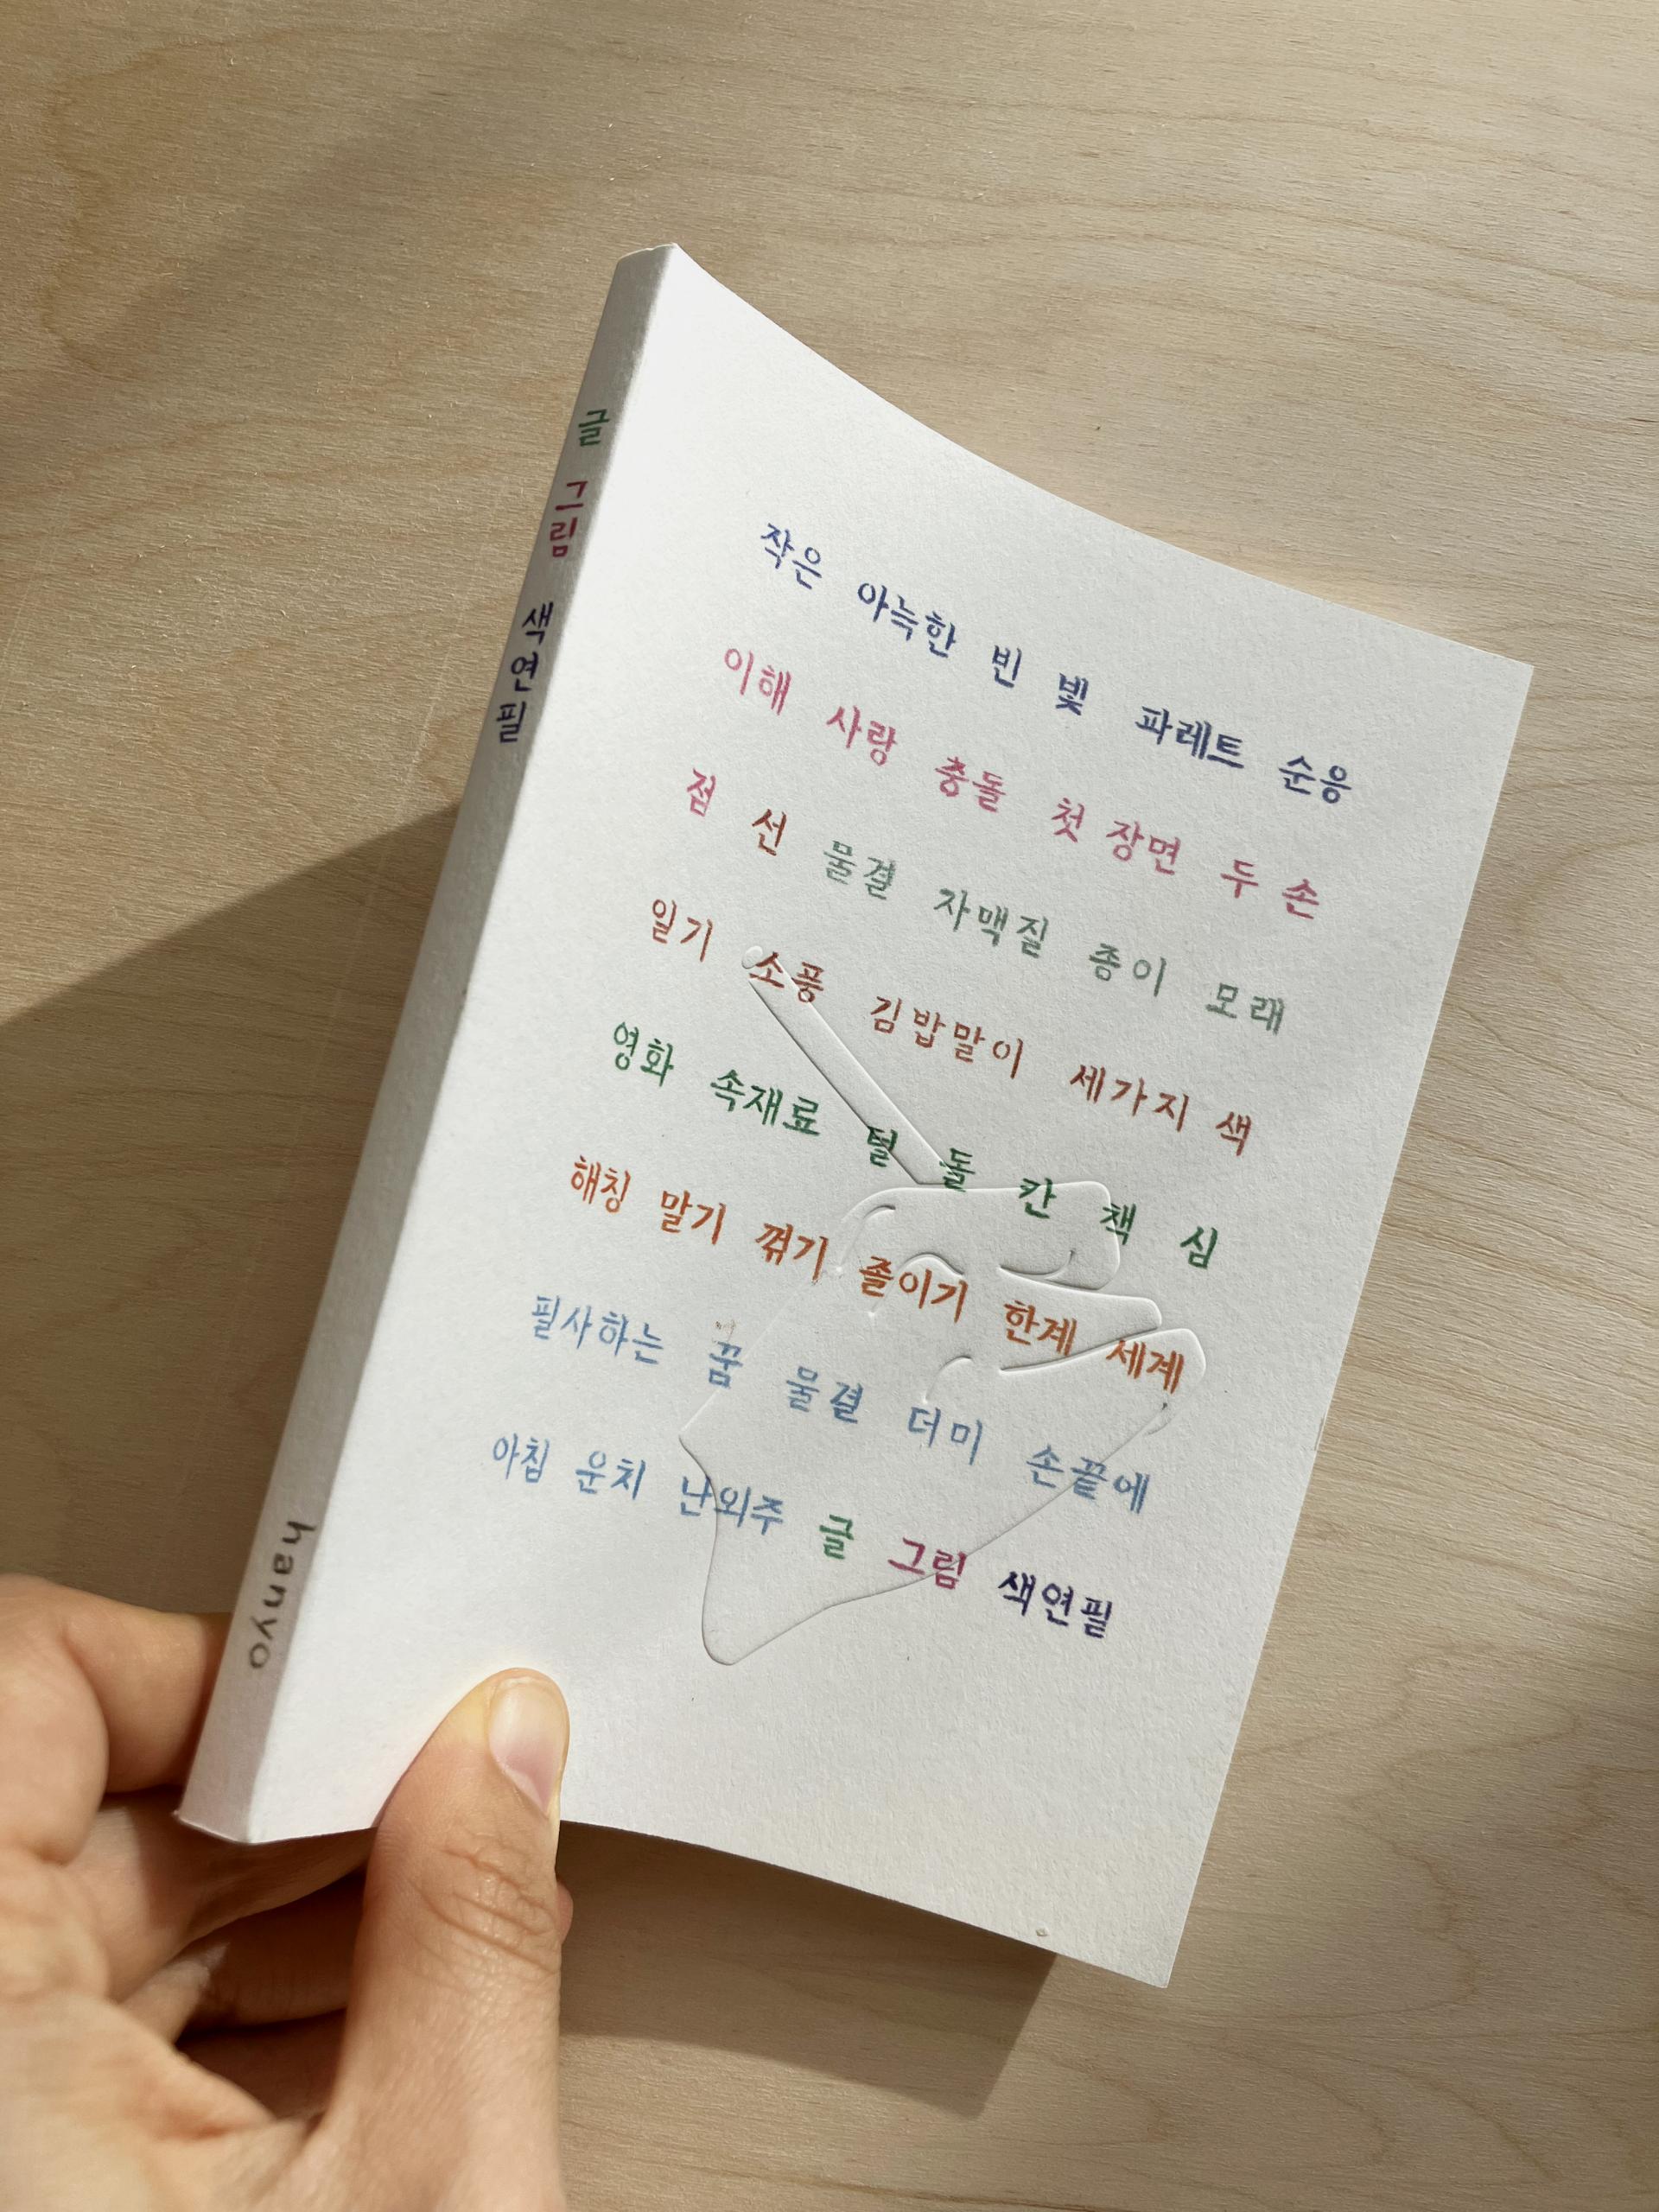 글 그림 색연필
hanyo
작은 아늑한 빈 빛 파레트 순응
이해 사랑 충돌 첫 장면 두 손
점 선 물결 자맥질 종이 모래
일기 소풍 김밥말이 세가지 색
영화 속재료 털 돌 칸 책 심
해칭 말기 꺾기 졸이기 한계 세계
필사하는 꿈 물결 더미 손끝에
아침 운치 난외주 글 그림 색연필